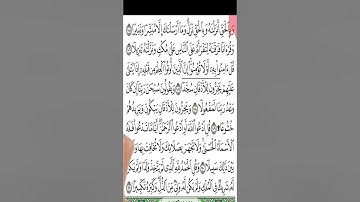 وَبِٱلْحَقِّ أَنزَلْنَٰهُ وَبِٱلْحَقِّ نَزَلَ وَمَآ أَرْسَلْنَٰكَ إِلَّا مُبَشِّرًا وَنَذِيرًا ١٠٥
وَقُرْءَانًا فَرَقْنَٰهُ لِتَقْرَأَهُۥ عَلَى ٱلنَّاسِ عَلَىٰ مُكْثٍ وَنَزَّلْنَٰهُ تَنزِيلًا ١٠٦
قُلْ ءَامِنُوا۟ بِهِۦٓ أَوْ لَا تُؤْمِنُوٓا۟ إِنَّ ٱلَّذِينَ أُوتُوا۟ ٱلْعِلْمَ مِن قَبْلِهِۦٓ إِذَا يُتْلَىٰ
عَلَيْهِمْ يَخِرُّونَ لِلْأَذْقَانِ سُجَّدًا ١٠٧ وَيَقُولُونَ سُبْحَٰنَ رَبِّنَآ إِن كَانَ
وَعْدُ رَبِّنَا لَمَفْعُولًا ١٠٨ وَيَخِرُّونَ لِلْأَذْقَانِ يَبْكُونَ وَيَزِيدُهُمْ
خُشُوعًا ۩ ١٠٩ قُلِ ٱدْعُوا۟ ٱللَّهَ أَوِ ٱدْعُوا۟ ٱلرَّحْمَٰنَ أَيًّا مَّا تَدْعُوا۟ فَلَهُ
ٱلْأَسْمَآءُ ٱلْحُسْنَىٰ وَلَا تَجْهَرْ بِصَلَاتِكَ وَلَا تُخَافِتْ بِهَا وَٱبْتَغِ
بَيْنَ ذَٰلِكَ سَبِيلًا ١١٠ وَقُلِ ٱلْحَمْدُ لِلَّهِ ٱلَّذِى لَمْ يَتَّخِذْ وَلَدًا وَلَمْ يَكُن
لَّهُۥ شَرِيكٌ فِى ٱلْمُلْكِ وَلَمْ يَكُن لَّهُۥ وَلِىٌّ مِّنَ ٱلذُّلِّ وَكَبِّرْهُ تَكْبِيرًۢا ١١١